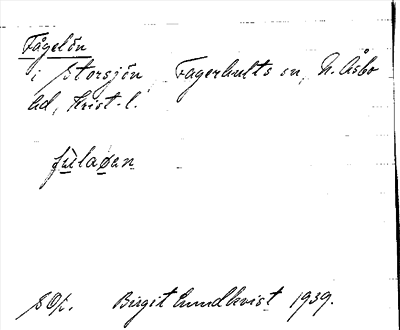 Fågelön
i Storsjön, Fagerhults sn, N. Åsbo
hd, Krist-l.
fù̀laøan
SOf. Birgit Lundkvist 1939.